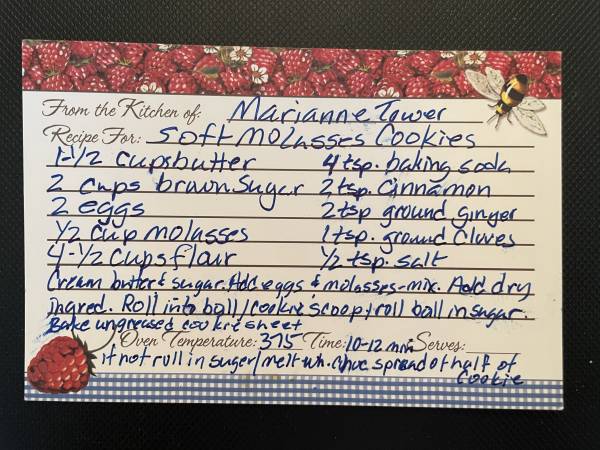 From the Kitchen of: Marianne Tower
Recipe For: Soft Molasses Cookies
1-1/2 cups butter 4 tsp. baking soda
2 cups brown sugar 2 tsp. Cinnamon
2 eggs 2 tsp ground ginger
1/2 cup molasses 1 tsp. ground Cloves
4-1/2 cups flour 1/2 tsp. salt
Cream butter & sugar. Add eggs & molasses-mix. Add dry
ingred. Roll into ball/cookie scoop & roll ball in sugar.
Bake ungreased cookie sheet
Oven Temperature: 375 Time: 10-12 min Serves:
if not roll in sugar/melt wh. choc spread of half of
Cookie